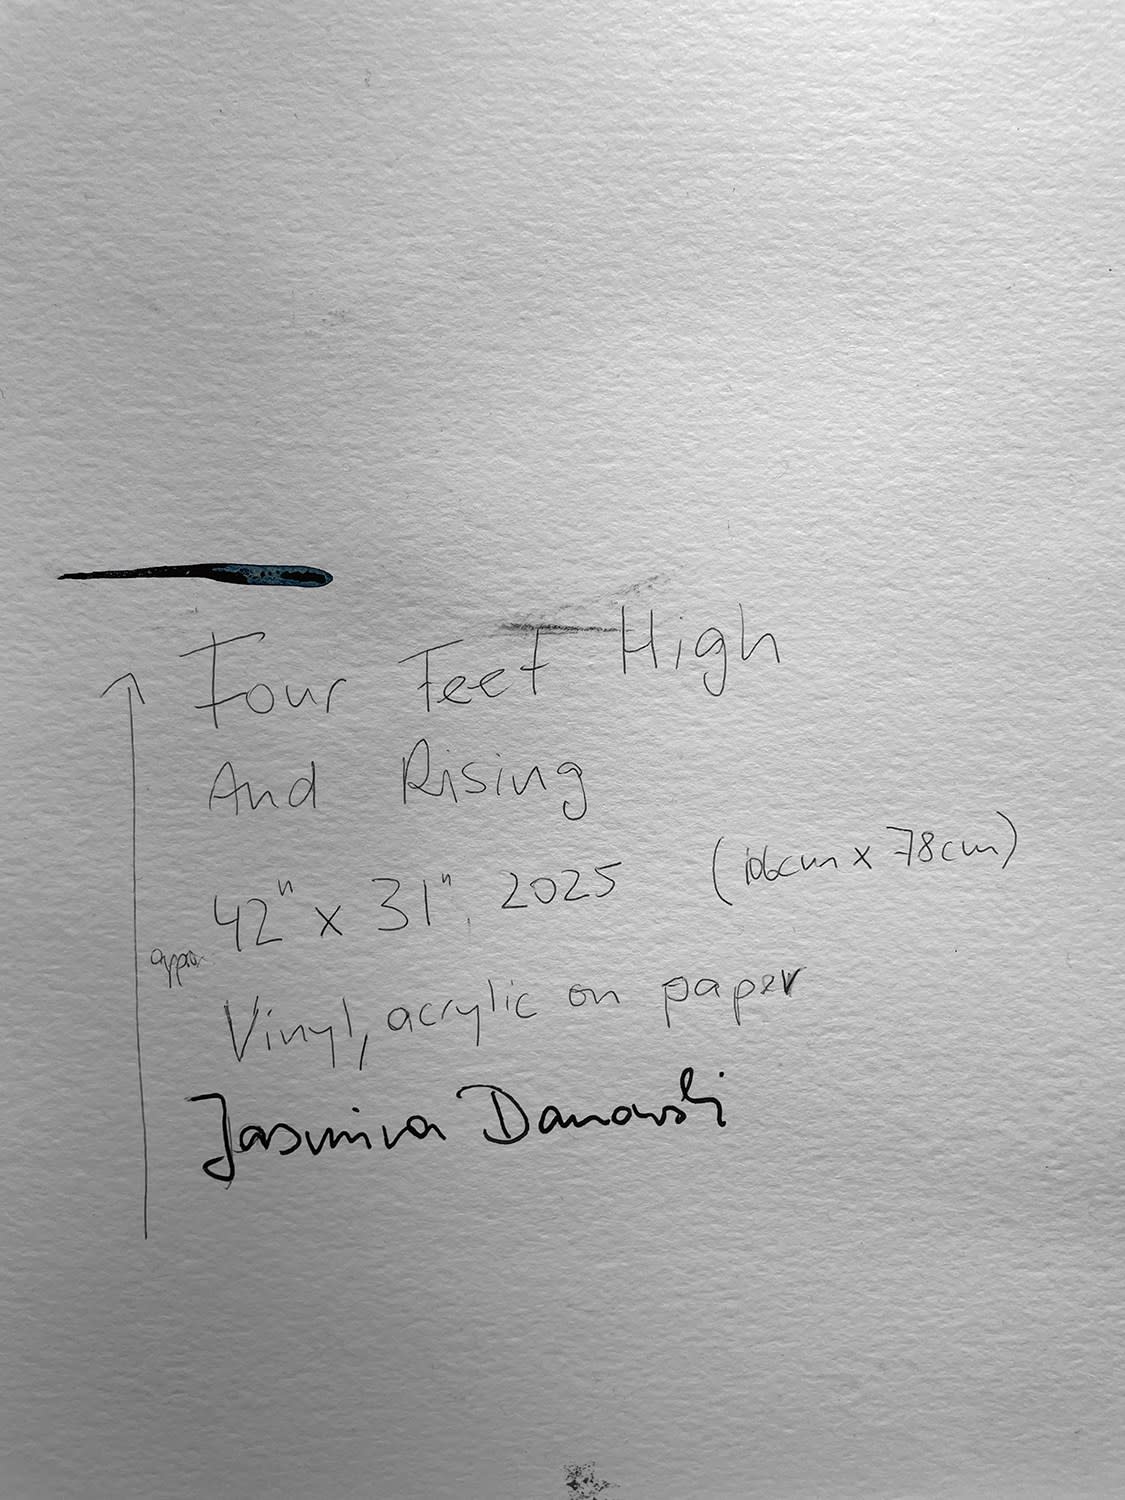 Four Feet High
And Rising
approx. 42" x 31", 2025 (106cm x 78cm)
Vinyl, acrylic on paper
Jasmina Danowski